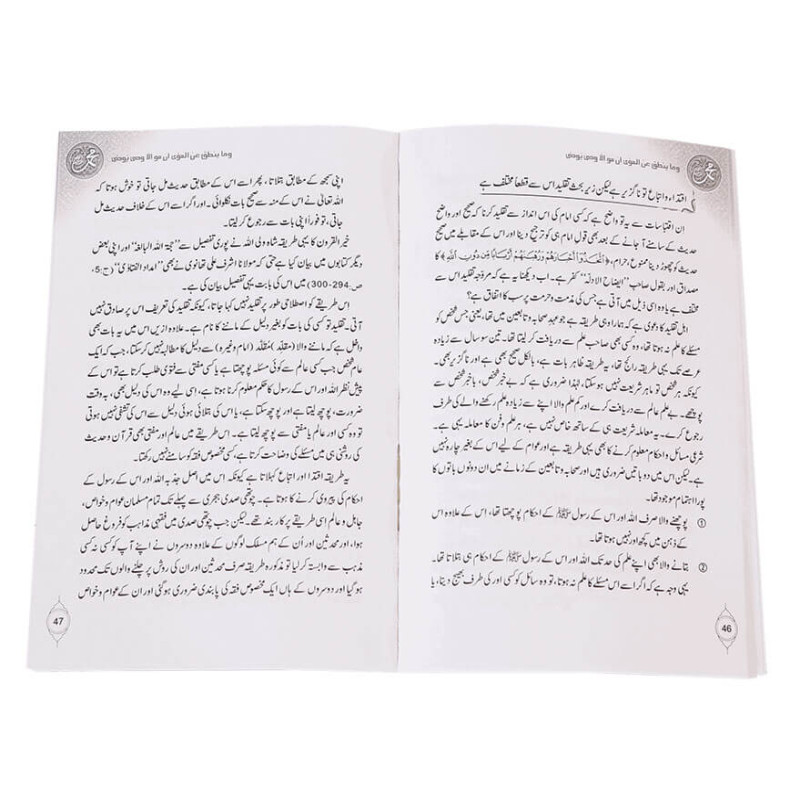 وما ينطق عن الهوى ان هو الا وحى يوحى
اقتداء واتباع تو ناگزیر ہے لیکن زیر بحث تقلید اس سے قطعاً مختلف ہے
ان اقتباسات سے یہ تو واضح ہے کہ کسی امام کی اس انداز سے تقلید کرنا کہ صحیح اور واضح
حدیث کے سامنے آ جانے کے بعد بھی قول امام ہی کو ترجیح دینا اور اس کے مقابلے میں صحیح
حدیث کو چھوڑ دینا ممنوع، حرام، ﴿اتَّخَذُوْٓا اَحْبَارَهُمْ وَرُهْبَانَهُمْ اَرْبَابًا مِّنْ دُوْنِ اللّٰهِ﴾ کا
مصداق اور بقول صاحب ”ایضاح الادلہ“ کفر ہے۔ اب دیکھنا یہ ہے کہ مروّجہ تقلید اس سے
مختلف ہے یا وہ اسی ذیل میں آتی ہے جس کی مذمت و حرمت پر سب کا اتفاق ہے؟
اہل تقلید کا دعویٰ ہے کہ ہمارا وہی طریقہ ہے جو عہد صحابہ و تابعین میں تھا، یعنی جس شخص کو
مسئلے کا علم نہ ہوتا تھا، وہ کسی بھی صاحب علم سے دریافت کر لیتا تھا۔ تین سو سال سے زیادہ
عرصے تک یہی طریقہ رائج تھا، یہ طریقہ ظاہر بات ہے، بالکل صحیح بھی ہے اور ناگزیر بھی۔
کیونکہ ہر شخص تو ماہر شریعت نہیں ہو سکتا، لہٰذا ضروری ہے کہ بے خبر شخص، باخبر شخص سے
پوچھے۔ بے علم عالم سے دریافت کرے اور کم علم والا اپنے سے زیادہ علم رکھنے والے کی طرف
رجوع کرے۔ یہ معاملہ شریعت ہی کے ساتھ خاص نہیں ہے، ہر علم و فن کا معاملہ یہی ہے۔
شرعی مسائل و احکام معلوم کرنے کا بھی یہی طریقہ ہے اور عوام کے لیے اس کے بغیر چارہ نہیں
ہے۔ لیکن اس میں دو باتیں ضروری ہیں اور صحابہ و تابعین کے زمانے میں ان دونوں باتوں کا
پورا اہتمام موجود تھا۔
① پوچھنے والا صرف اللہ اور اس کے رسول ﷺ کے احکام پوچھتا تھا، اس کے علاوہ اس
کے ذہن میں کچھ اور نہیں ہوتا تھا۔
② بتانے والا بھی اپنے علم کی حد تک اللہ اور اس کے رسول ﷺ کے احکام ہی بتلاتا تھا۔
یہی وجہ ہے کہ اگر اسے اس مسئلے کا علم نہ ہوتا، تو وہ سائل کو کسی اور کی طرف بھیج دیتا، یا
46
وما ينطق عن الهوى ان هو الا وحى يوحى
اپنی سمجھ کے مطابق بتلاتا، پھر اسے اس کے مطابق حدیث مل جاتی تو خوش ہوتا کہ
اللہ تعالیٰ نے اس کے منہ سے صحیح بات نکلوائی۔ اور اگر اسے اس کے خلاف حدیث مل
جاتی، تو فوراً اپنی بات سے رجوع کر لیتا۔
خیر القرون کا یہی طریقہ شاہ ولی اللہ نے پوری تفصیل سے ”حجۃ اللہ البالغہ“ اور اپنی بعض
دیگر کتابوں میں بیان کیا ہے حتی کہ مولانا اشرف علی تھانوی نے بھی ”امداد الفتاویٰ“ (ج:5،
ص:294-300) میں اس کی بابت یہی تفصیل بیان کی ہے۔
اس طریقے کو اصطلاحی طور پر تقلید نہیں کہا جاتا، کیونکہ تقلید کی تعریف اس پر صادق نہیں
آتی۔ تقلید تو کسی کی بات کو بغیر دلیل کے ماننے کا نام ہے۔ علاوہ ازیں اس میں یہ بات بھی
داخل ہے کہ ماننے والا (مقلِّد) مقلَّد (امام وغیرہ) سے دلیل کا مطالبہ نہیں کر سکتا، جب کہ ایک
عام شخص جب کسی عالم سے کوئی مسئلہ پوچھتا ہے یا کسی مفتی سے فتویٰ طلب کرتا ہے تو اس کے
پیش نظر اللہ اور اس کے رسول کا حکم معلوم کرنا ہوتا ہے، اسی لیے وہ اس کی دلیل بھی، بہ وقت
ضرورت، پوچھ لیتا ہے اور پوچھ سکتا ہے، یا اس کی بتلائی ہوئی دلیل سے اس کی تشفی نہیں ہوتی
تو وہ کسی اور عالم یا مفتی سے پوچھ لیتا ہے۔ اس طریقے میں عالم اور مفتی بھی قرآن و حدیث
کی روشنی ہی میں مسئلے کی وضاحت کرتا ہے، کسی مخصوص فقہ کو سامنے نہیں رکھتا۔
یہ طریقہ اقتدا اور اتباع کہلاتا ہے کیونکہ اس میں اصل جذبہ اللہ اور اس کے رسول کے
احکام کی پیروی کرنے کا ہوتا ہے۔ چوتھی صدی ہجری سے پہلے تک تمام مسلمان عوام و خواص،
جاہل و عالم اسی طریقے پر کاربند تھے۔ لیکن جب چوتھی صدی میں فقہی مذاہب کو فروغ حاصل
ہوا، اور محدثین اور اُن کے ہم مسلک لوگوں کے علاوہ دوسروں نے اپنے آپ کو کسی نہ کسی
مذہب سے وابستہ کر لیا تو مذکورہ طریقہ صرف محدثین اور ان کی روش پر چلنے والوں تک محدود
ہو گیا اور دوسروں کے ہاں ایک مخصوص فقہ کی پابندی ضروری ہو گئی اور ان کے عوام و خواص
47